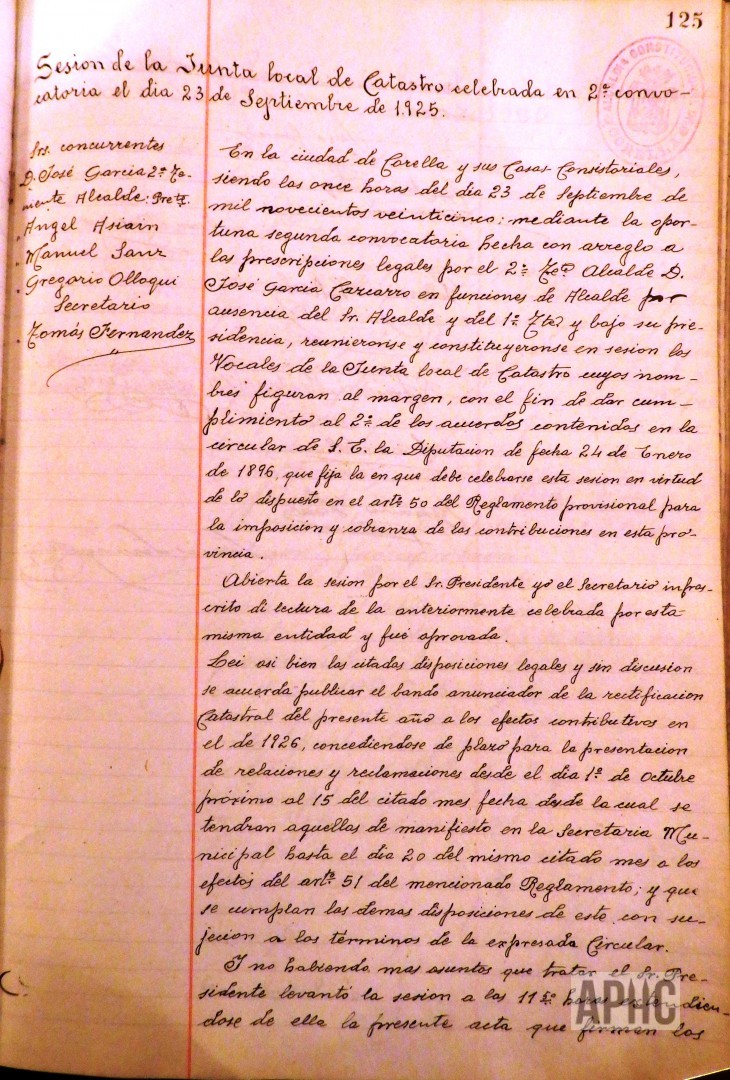 125
Sesion de la Junta local de Catastro celebrada en 2ª convo-
catoria el dia 23 de Septiembre de 1.925.
Srs. concurrentes
D. José Garcia 2º Te-
niente Alcalde: Preste
Angel Asiain
Manuel Sanz
Gregorio Olloqui
Secretario
Tomás Fernandez
En la ciudad de Corella y sus Casas Consistoriales,
siendo las once horas del dia 23 de Septiembre de
mil novecientos veinticinco: mediante la opor-
tuna segunda convocatoria hecha con arreglo a
las prescripciones legales por el 2º Tte Alcalde D.
José Garcia Carcarro en funciones de Alcalde por
ausencia del Sr. Alcalde y del 1º Tte y bajo su pre-
sidencia, reunieronse y constituyeronse en sesion los
Vocales de la Junta local de Catastro cuyos nom-
bres figuran al margen, con el fin de dar cum-
plimiento al 2º de los acuerdos contenidos en la
circular de S. E. la Diputacion de fecha 24 de Enero
de 1896, que fija la en que debe celebrarse esta sesion en virtud
de lo dispuesto en el artº 50 del Reglamento provisional para
la imposicion y cobranza de las contribuciones en esta pro-
vincia.
Abierta la sesion por el Sr. Presidente yo el Secretario infras-
crito di lectura de la anteriormente celebrada por esta
misma entidad y fué aprovada.
Lei asi bien las citadas disposiciones legales y sin discusion
se acuerda publicar el bando anunciador de la rectificacion
Catastral del presente año a los efectos contributivos en
el de 1926, concediendose de plazo para la presentacion
de relaciones y reclamaciones desde el dia 1º de Octubre
próximo al 15 del citado mes fecha desde la cual se
tendran aquellas de manifiesto en la Secretaria Mu-
nicipal hasta el dia 20 del mismo citado mes a los
efectos del artº 51 del mencionado Reglamento; y que
se cumplan las demas disposiciones de este con su-
jecion a los términos de la expresada Circular.
Y no habiendo mas asuntos que tratar el Sr. Pre-
sidente levantó la sesion a las 11 horas extendien-
dose de ella la presente acta que firman los
APHC